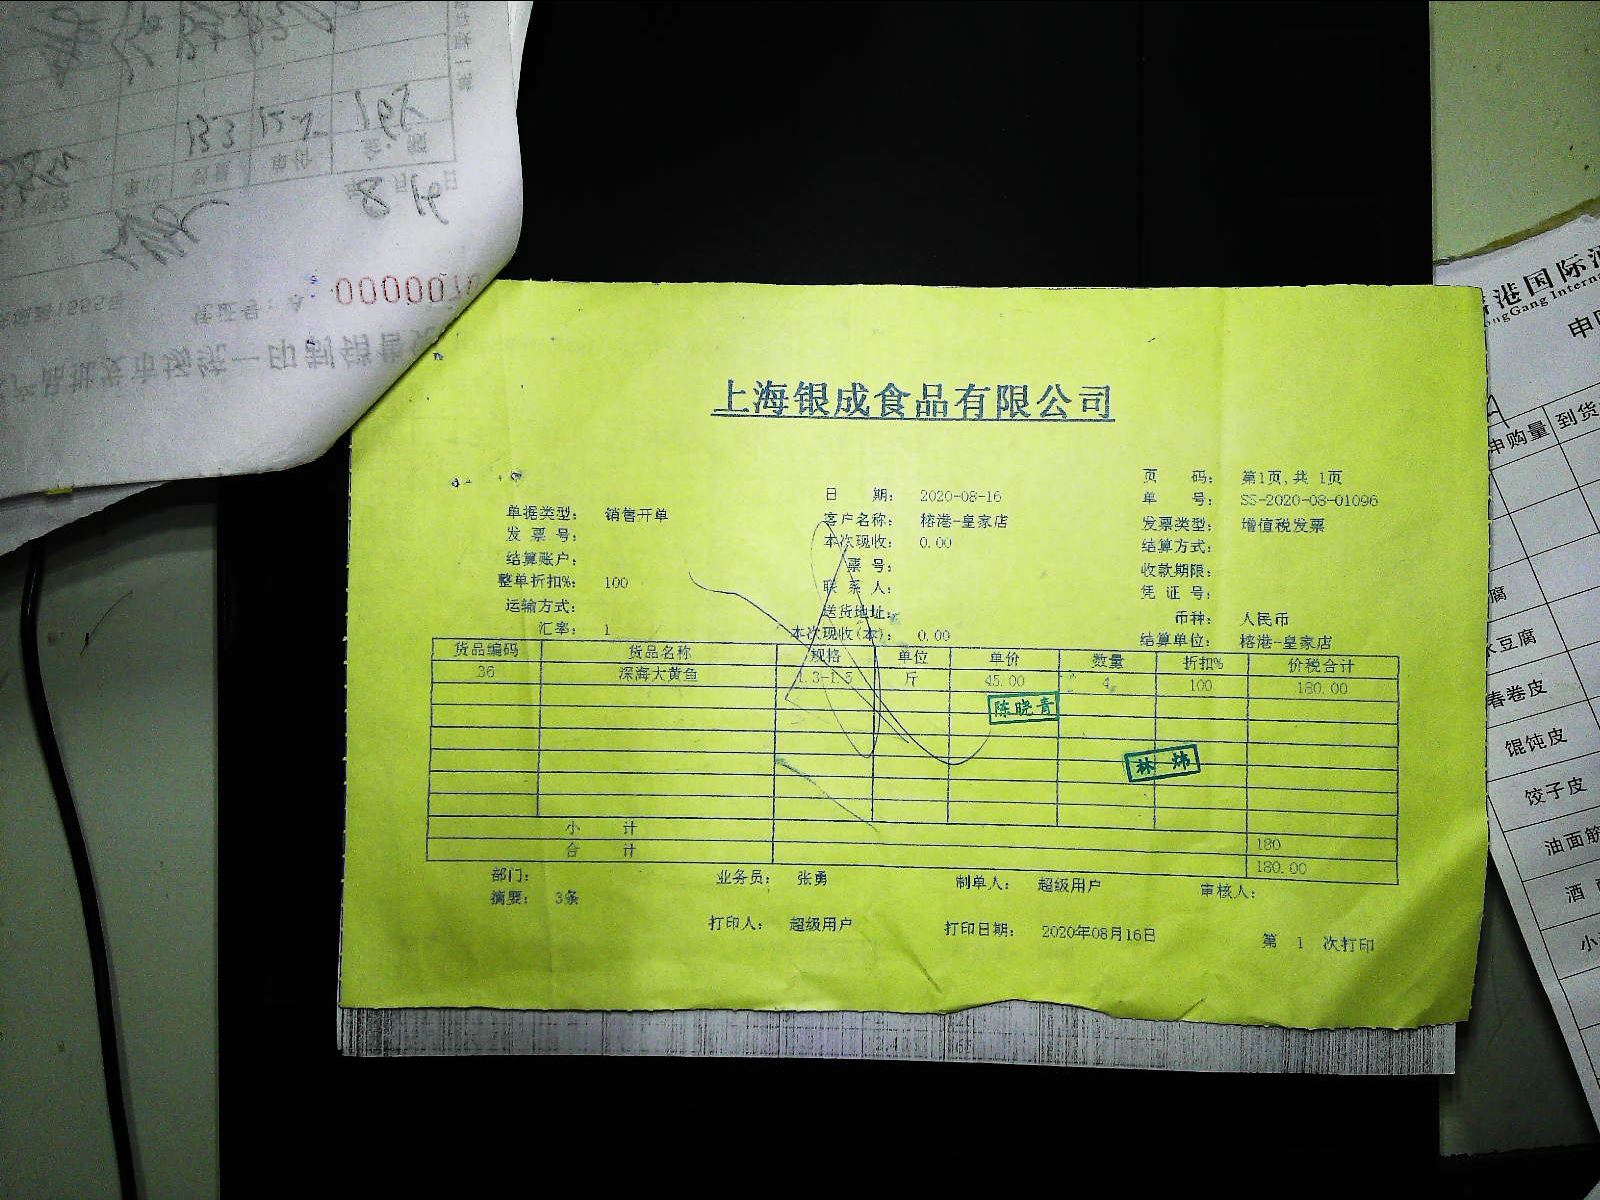 上海银成食品有限公司
页 码： 第1页,共 1页
日 期： 2020-08-16 单 号： SS-2020-08-01096
单据类型： 销售开单 客户名称： 榕港-皇家店 发票类型： 增值税发票
发 票 号： 本次现收： 0.00 结算方式：
结算账户： 票 号： 收款期限：
整单折扣%： 100 联 系 人： 凭 证 号：
运输方式： 送货地址： 币种： 人民币
汇率： 1 本次现收(本)： 0.00 结算单位： 榕港-皇家店
货品编码 货品名称 规格 单位 单价 数量 折扣% 价税合计
36 深海大黄鱼 1.3-1.5 斤 45.00 4 100 180.00
陈晓青
林 炜
小 计 180
合 计 180.00
部门： 业务员： 张勇 制单人： 超级用户 审核人：
摘要： 3条
打印人： 超级用户 打印日期： 2020年08月16日 第 1 次打印
港国际
申购量 到货
腐
豆腐
春卷皮
馄饨皮
饺子皮
油面筋
酒
小